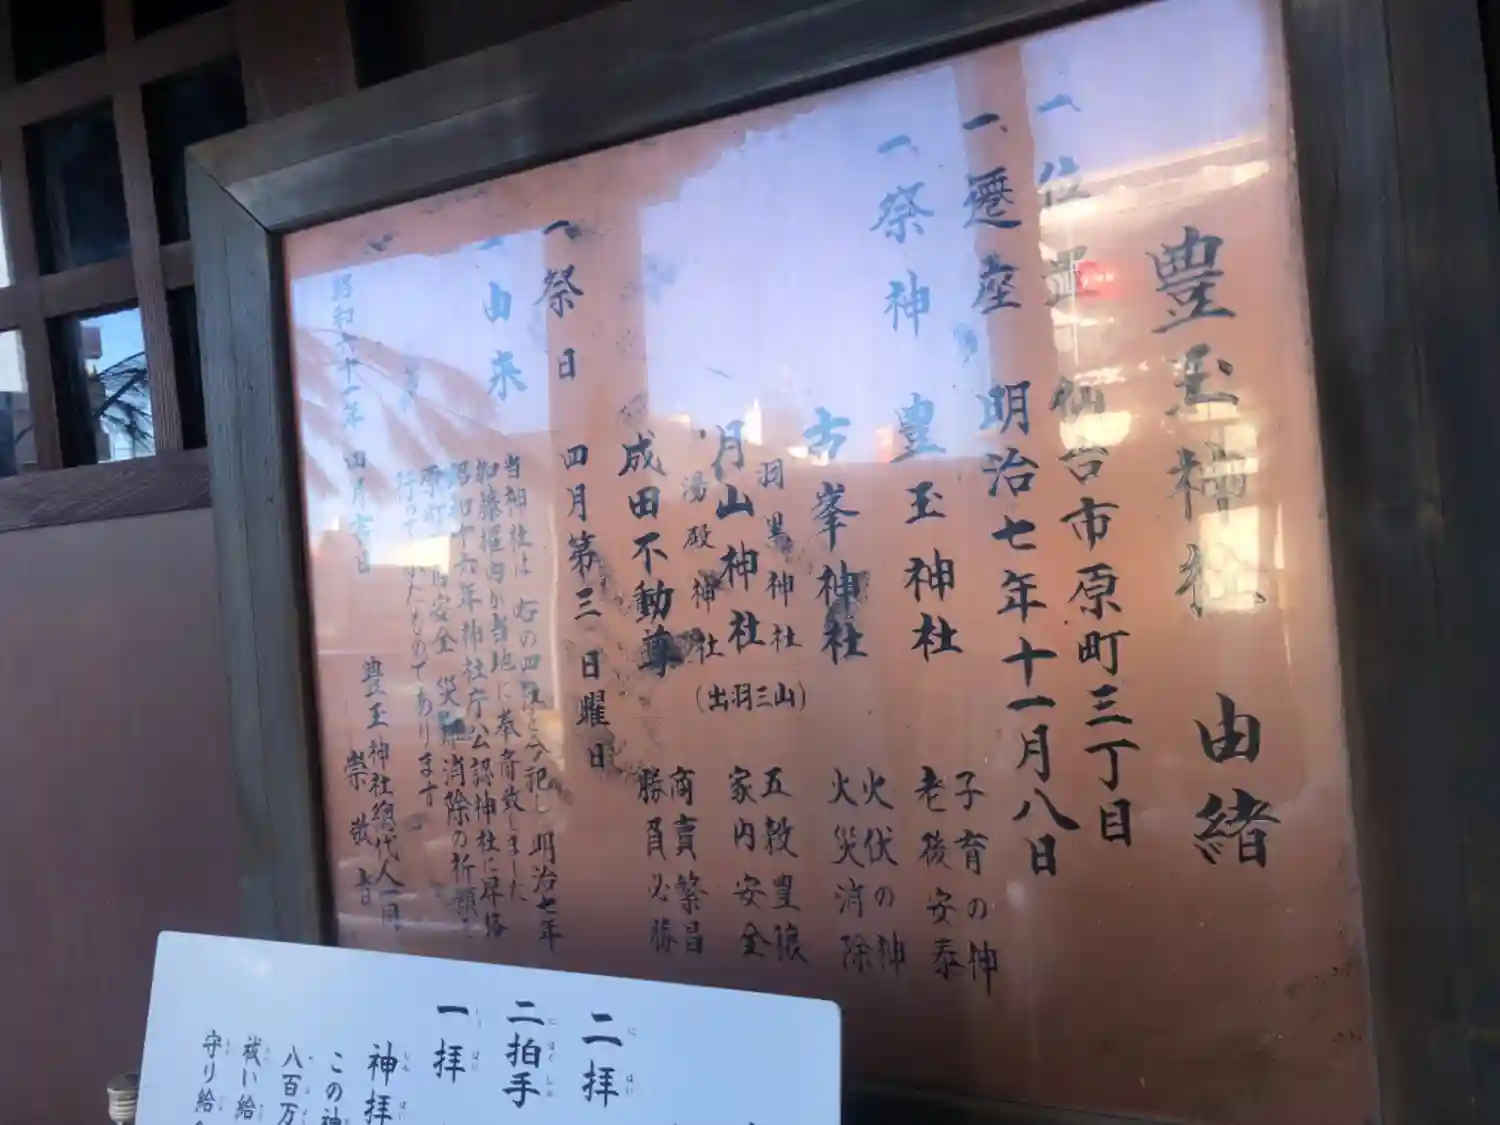 豊玉神社 由緒
一、位置 仙台市原町三丁目
一、遷座 明治七年十一月八日
一、祭神 豊玉神社 子育の神
老後安泰
古峯神社 火伏の神
火災消除
羽黒神社
月山神社 (出羽三山)
湯殿神社
五穀豊穣
家内安全
成田不動尊 商売繁昌
勝負必勝
一、祭日 四月第三日曜日
由来
当神社は の四 を分祀し明治七年
加藤 が当地に奉斎致しました
昭和十六年神社庁公認神社に昇格
原町 安全 災 消除の祈願
行って たものであります
昭和六十一年 四月吉日
豊玉神社總代人一同
崇敬者
二拝
にはい
二拍手
にはくしゅ
一拝
いちはい
神拝
しんぱい
この神
八百万
祓い給
守り給